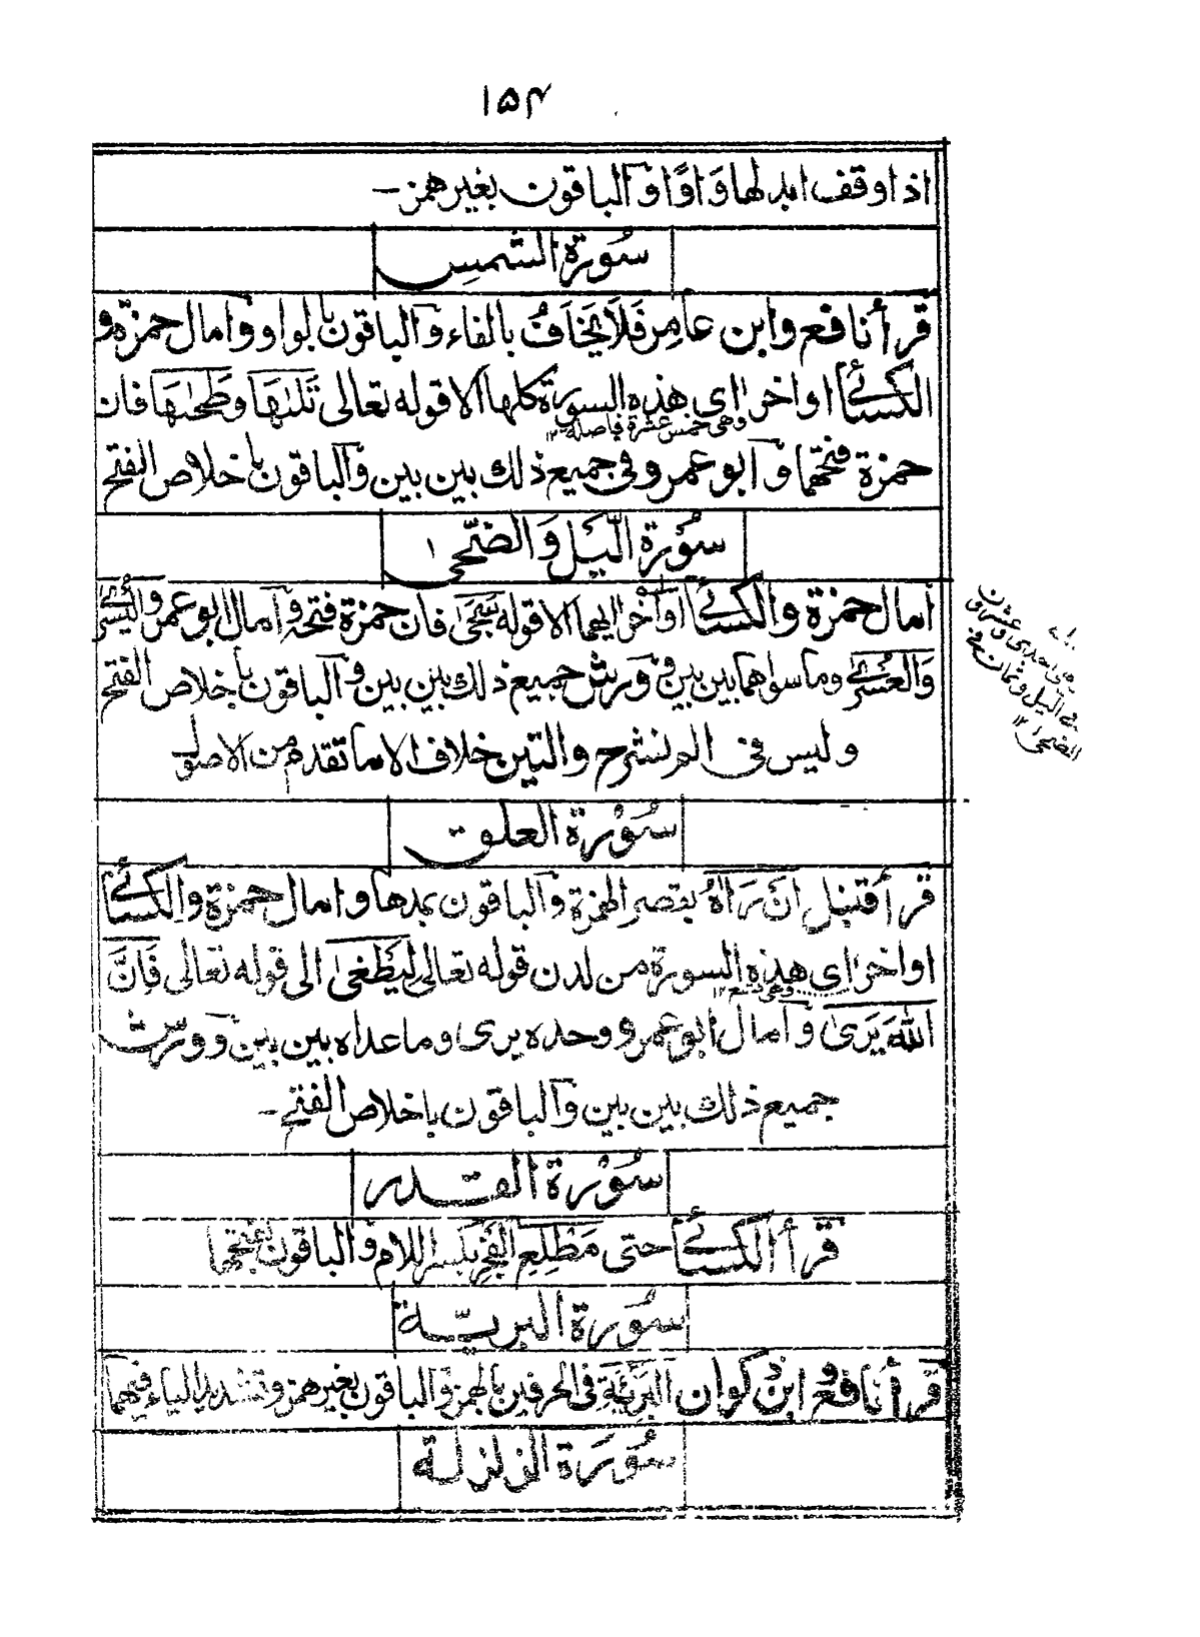 ۱۵۴
اذا وقف ابدلها وَاوًا والباقون بغير همز۔
سُورة الشمس
قرأ نافع وابن عامر فَلَا يَخَافُ بالفاء والباقون بالواو وامال حمزة و
الكسائى اواخر اى هذه السورة كلها الا قوله تعالى تَلٰىهَا وطَحٰىهَا فان
وهى خمس عشرة فاصلة ۱۲
حمزة فتحهما وابو عمرو فى جميع ذلك بين بين والباقون باخلاص الفتح
سُورة الّيل وَالضّحى
امال حمزة والكسائى اواخر ايهما الا قوله سَجٰى فان حمزة فتحه وامال ابو عمرو لِلْيُسْرٰى
وَالعُسْرٰى وما سواهما بين بين وورش جميع ذلك بين بين والباقون باخلاص الفتح
وليس فى الم نشرح والتين خلاف الا ما تقدم من الاصول
احدى وعشرون
فى اليل وثمان فى
الضحى ۱۲
سُورة العلق
قرأ قنبل اَنْ رَاٰهُ بقصر الهمزة والباقون بمدها وامال حمزة والكسائى
اواخر اى هذه السورة من لدن قوله تعالى لَيَطْغٰى الى قوله تعالى فَاِنَّ
وهى تسع ۱۲
اللهَ يَرٰى وامال ابو عمرو وحده يرى وما عداه بين بين وورش
جميع ذلك بين بين والباقون باخلاص الفتح۔
سُورة القدر
قرأ الكسائى حتى مَطْلِعِ الْفَجْرِ بكسر اللام والباقون بفتحها
سُورة البريّة
قرأ نافع وابن ذكوان البَرِيْئَةِ فى الحرفين بالهمز والباقون بغير همز وتشديد الياء فيهما
سُورَة الزلزلة